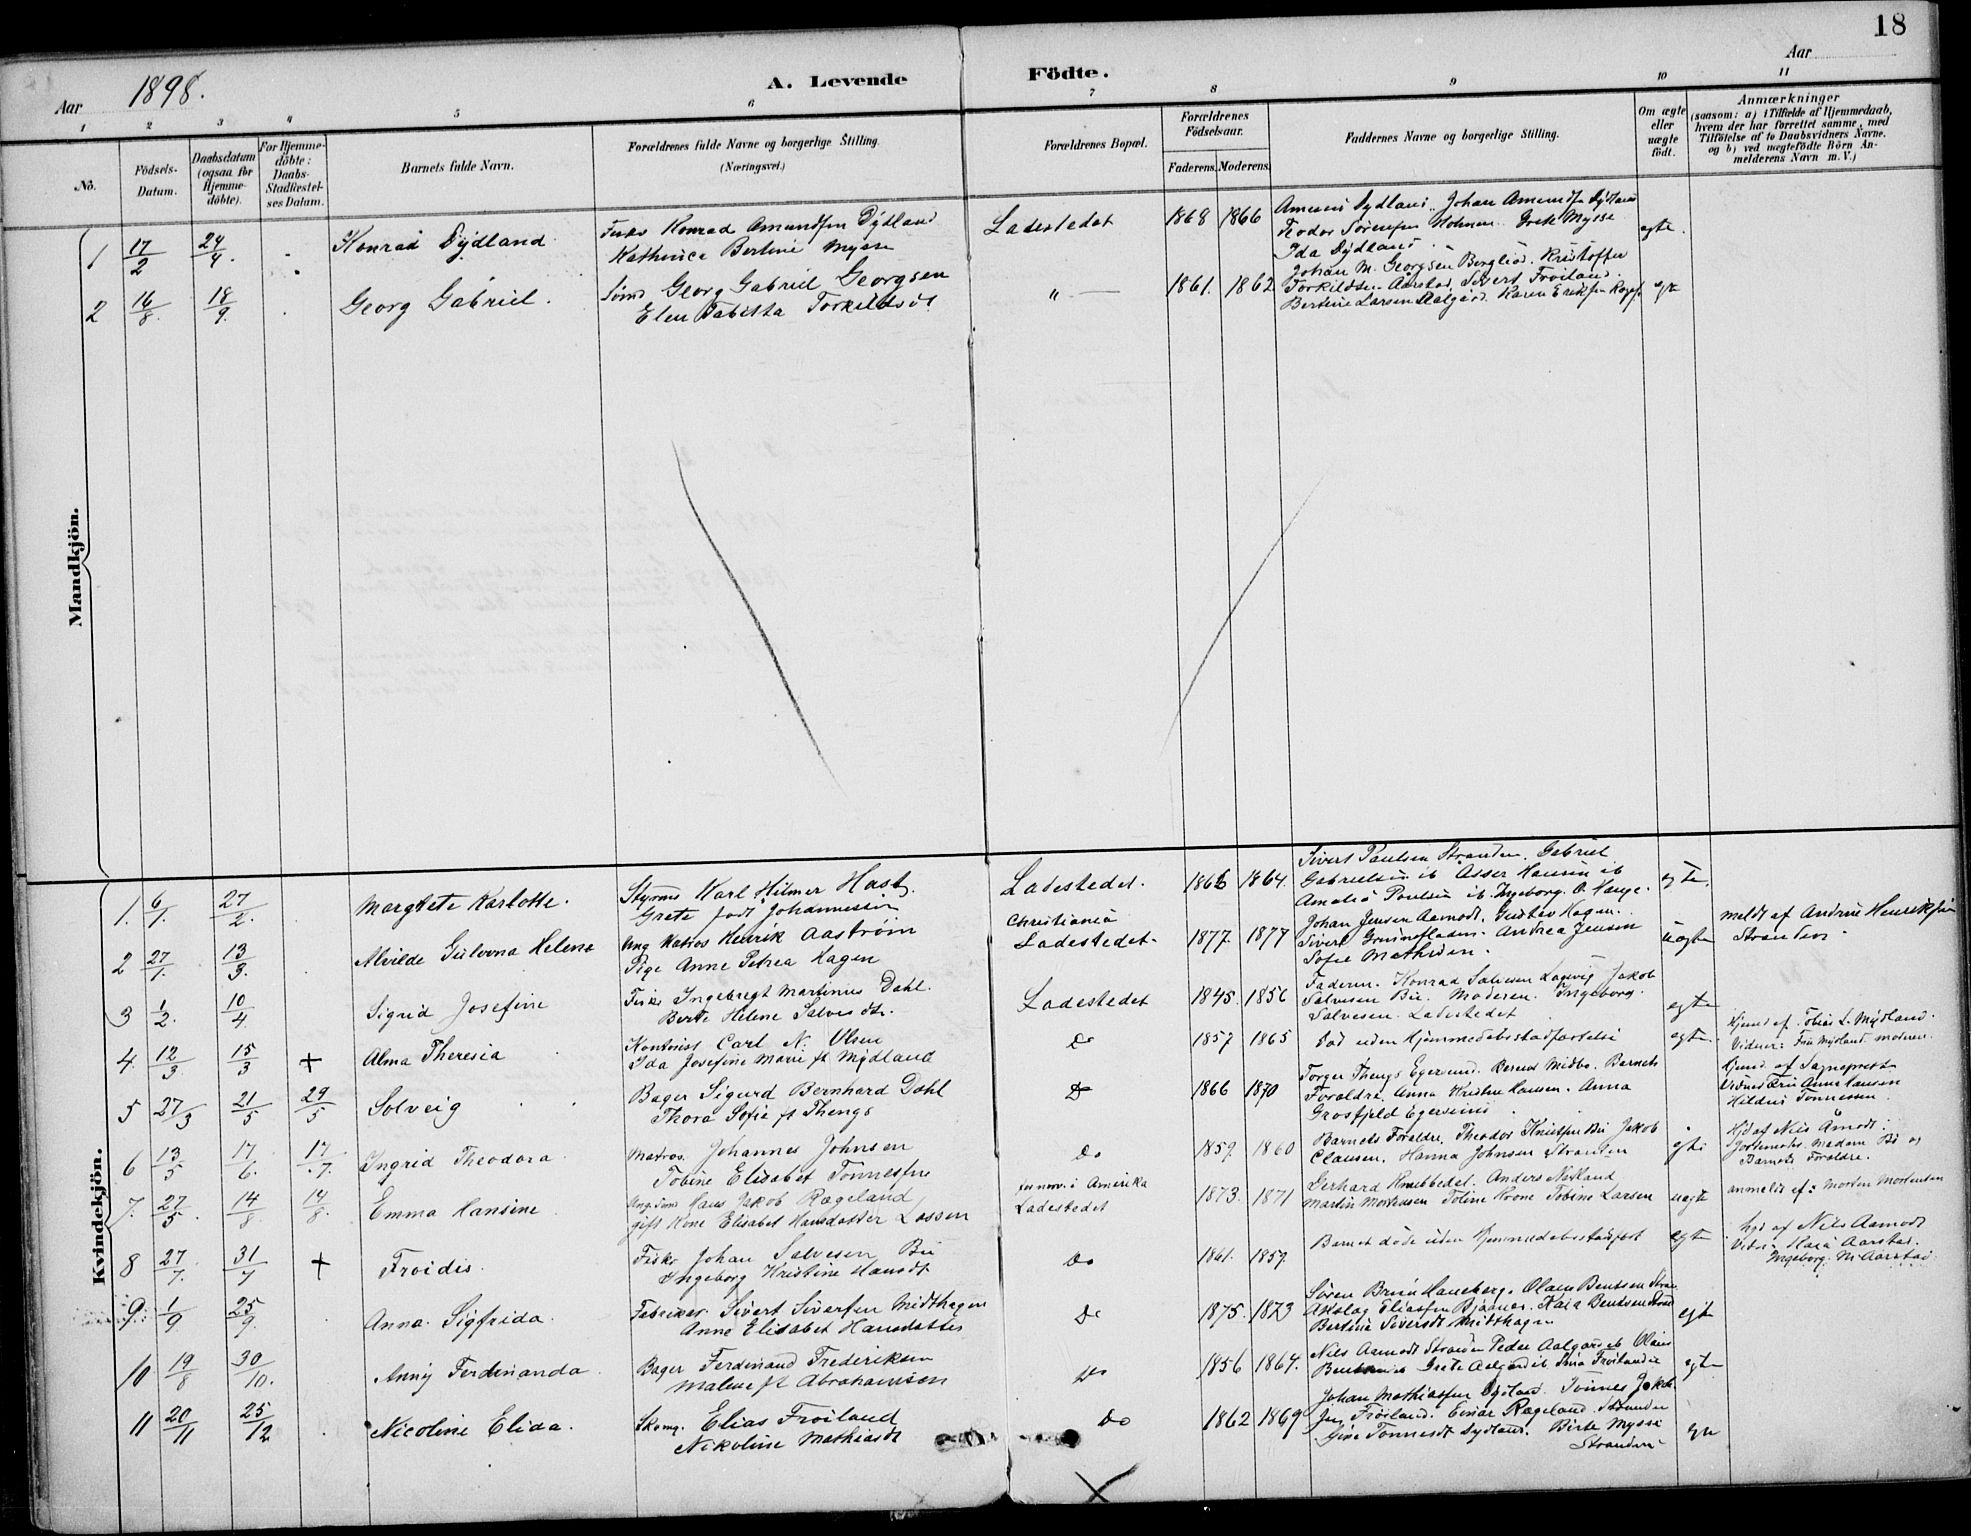 18
Aar 1898.
A. Levende Födte.
Aar
1 2 3 4 5 6 7 8 9 10 11
No.
Födsels-Datum.
Daabsdatum (ogsaa for Hjemme-döbte).
For Hjemme-döbte: Daabs-Stadfæstel-ses Datum.
Barnets fulde Navn.
Forældrenes fulde Navne og borgerlige Stilling. (Næringsvei.)
Forældrenes Bopæl.
Forældrenes Födselsaar.
Faderens. Moderens.
Faddernes Navne og borgerlige Stilling.
Om ægte eller uægte födt.
Anmærkninger
(saasom: a) i Tilfælde af Hjemmedaab,
hvem der har forrettet samme, med
Tilföielse af to Daabsvidners Navne.
og b) ved uægtefödte Börn An-
melderens Navn m. V.)
Mandkjön.
1 17/2 24/4. Konrad Dydland
Fisker Konrad Amundsen Dydland
Kathinca Bertine Mysse
Ladestedet 1868 1866
Johan Amundsen Dydland
Teodor Sörensen Holmen. Grete Mysse
Ida Dydland
egte.
2 16/8. 18/9. Georg Gabriel.
Georg Gabriel Georgsen
Elen Tabitta Torkildsdt
" — 1861. 1862
Johan M. Georgsen Bergliod. Kristoffer
Torkildsen Aarstad. Sivert Froiland.
Bertine Larsen Aalgård. Karen Eriksen
egte
Kvindekjön.
1. 6/1. 27/2. Margrete Karlotte.
Styrmd Karl Hilmer Hast.
Grete født Johannessen
Ladestedet. 1866 1864.
Sivert Paulsen Stranden. Gabriel
Gabrielsen ib Asser Hansen ib
Amalia Poulsen ib. Ingeborg O. Hauge.
egte.
2 27/1. 13/3. Alvilde Gulovna Helene
Ung Matros Henrik Aastrøm
Pige Anne Petrea Hagen
Christiania
Ladestedet. 1877. 1877
Johan Jensen Aamodt. Gustav Hagen.
Sivert. Andrea Jensen
Sofie Mathisen.
uægte
meldt af Andrine Henriksen
Stranden.
3 1/2. 10/4 Sigrid Josefine
Fisker Ingebregt Martinus Dahl.
Berte Helene Salvesdtr.
Ladestedet 1845. 1856
Faderen. Konrad Salvesen Jakob
Salvesen Bie. Moderen. Ingeborg
Salvesen. Ladestedet
egte
4. 12/3 15/3 + Alma Theresia
Kontorist Carl N. Olsen
Ida Josefine Marie ft Mydland
Do 1857 1865
Død uden Hjemmedåbsstadfæstelse
egte.
Hjemd af. Tobias L. Mydland.
Vidner: Fru Mydland moderen.
5 27/3 21/5 29/5 Solveig
Bager Sigurd Bernhard Dahl
Thora Sofie ft Thengs
Do 1866 1870
Torger Thengs Egersund. Berent Midbø. Barnets
Forældre. Anna Kristine Hansen. Anna
Grosfjeld Egersund
Hjemd. af Sogneprest
Vidner Fru Anna Hansen
Hildur Tönnessen
6 13/5 17/6. 17/7. Ingrid Theodora
Matros. Johannes Johnsen
Tobine Elisabet Tönnessen
Do 1859. 1860
Barnets Forældre, Theodor Knutsen Bie Jakob
Clausen. Hanna Johnsen Stranden
egte
Hjd af Nils Åmodt.
Jordemoder Madam Bö og
Barnets Forældre.
7. 27/5 14/8 14/8. Emma Hansine
Ung. Hans Jakob Rægeland
gift Kone Elisabet Hansdatter Lassen
i Amerika
Ladestedet 1873. 1871
Gerhard. Anders Netland
Martin Mortensen Toline Krone Tobine Larsen
uægte
anmeldt af: Morten Mortensen
8 27/7. 31/7 + Froidis.
Fisker Johan Salvesen Bie
Ingeborg Kristine Hansdt
Do 1861. 1859.
Barnet døde uden Hjemmedåbsstadfæst
egte
hjd af Nils Aamodt
Vidner Maria Aarstad.
Ingeborg M. Aarstad
9. 1/9 25/9 Anna Sigfrida.
Sivert Sivertsen Midthagen
Anne Elisabet Hansdatter
Do 1875. 1873
Sören Bruin Haneberg. Olaus Bentsen
Aslag Eliassen Bjaanes. Kaia Bentsen
Bertine Sivertsdt Midthagen
egte
10 19/8 30/10. Anny Ferdinanda
Bager Ferdinand Frederiksen
Malene ft Abrahamsen
Do 1856 1864.
Nils Aamodt Stranden Peder Aalgård ib Olaus
Grete Aalgård ib Froiland ib
egte
11 20/11 25/12 Nicoline Elida.
Skom. Elias Froiland
Nikoline Mathiasdt
Do 1862 1869
Johan Mathiassen Dydland. Tönnes Jakob
Froiland. Einar Rægeland. Stranden
Tönnesdt Dydland. Birte Mysse
Stranden
egte